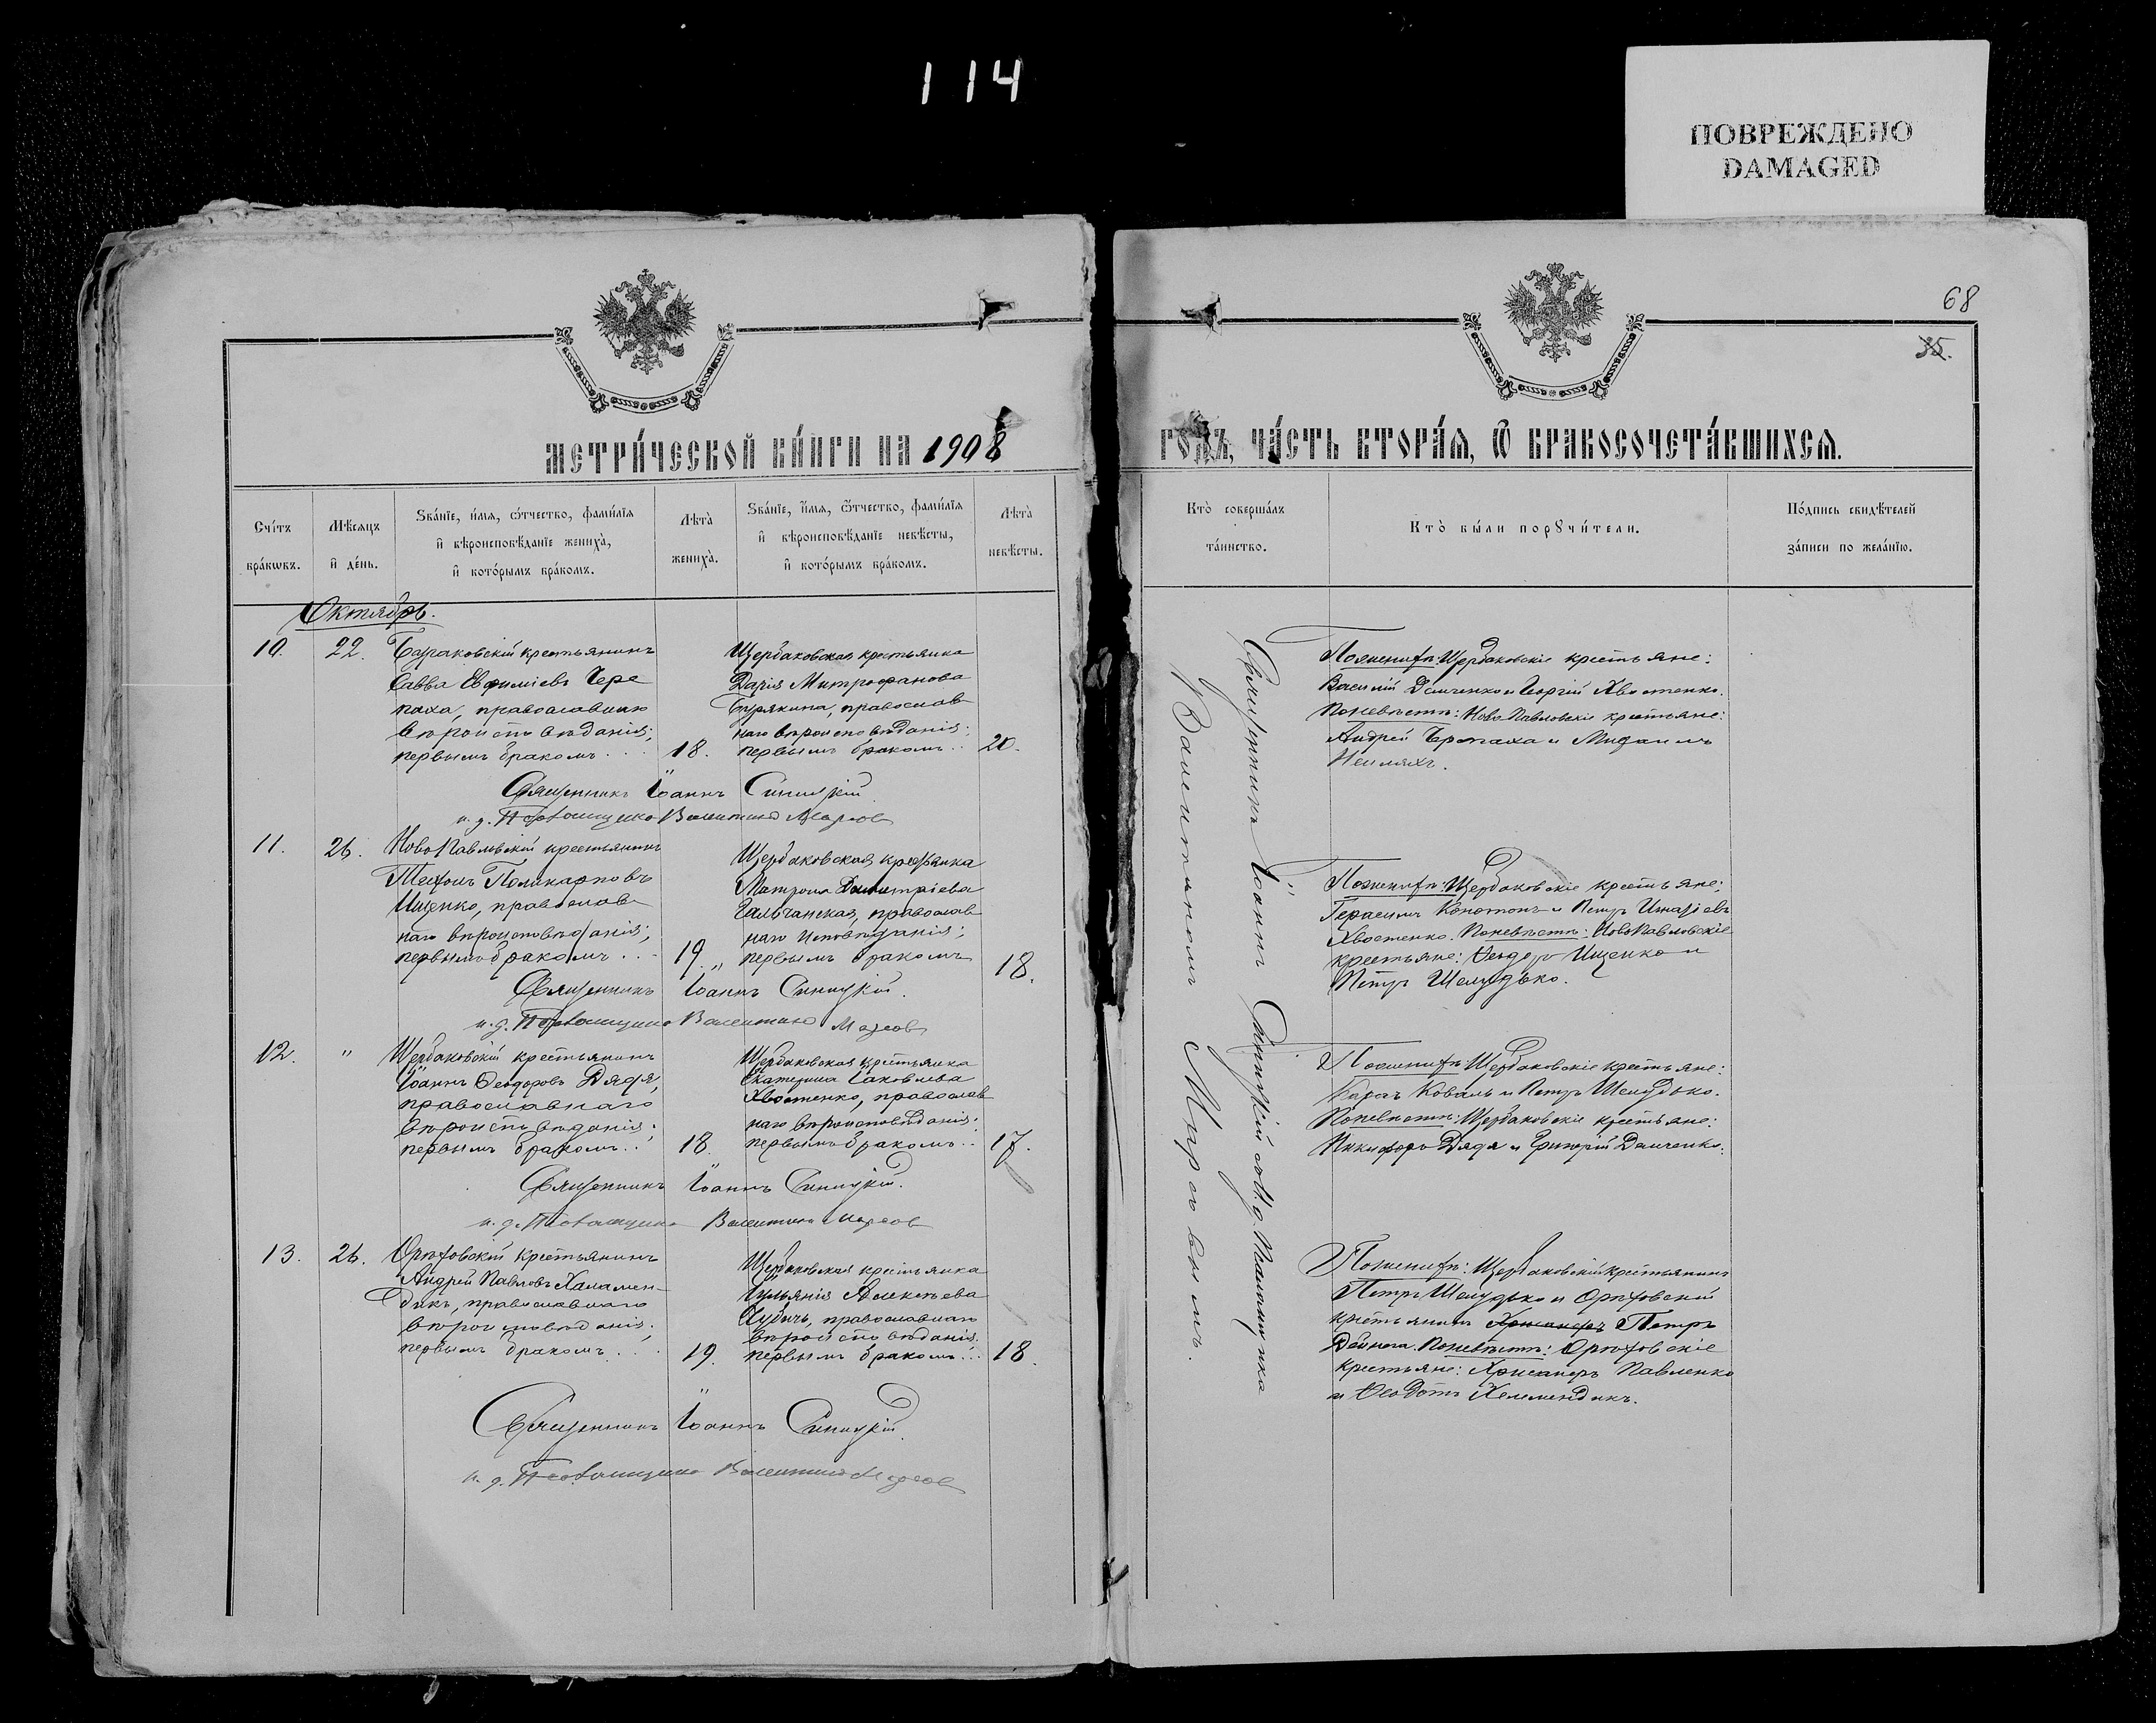 114
ПОВРЕЖДЕНО
DAMAGED
68
35.
МЕТРИ́ЧЕСКОЙ КНИ́ГИ НА 1908
ГОДЪ, ЧА́СТЬ ВТОРА́Я, Ѽ БРАКОСОЧЕТА́ВШИХСЯ.
Сче́тъ бра́кѡвъ.
Мѣ́сяцъ и де́нь.
Зва́нїе, и́мя, ѻ́тчество, фами́лїя и вѣроисповѣ́данїе жениха̀, и кото́рымъ бра́комъ.
Лѣта̀ жениха̀.
Зва́нїе, и́мя, ѻ́тчество, фами́лїя и вѣроисповѣ́данїе невѣ́сты, и кото́рымъ бра́комъ.
Лѣта̀ невѣ́сты.
Кто̀ соверша́лъ та́инство.
Кто̀ бы́ли порꙋчи́тели.
По́дпись свидѣ́телей за́писи по жела́нїю.
Октябрь.
10.
22.
крестьянинъ
Савва Евфиміевъ Чере
паха, православнаго
вѣроисповѣданія;
первымъ бракомъ...
18.
Щербаковская крестьянка
Дарія Митрофанова
православ
наго вѣроисповѣданія;
первымъ бракомъ..
20.
Поженихѣ: Щербаковскіе крестьяне:
Василій Демченко и Георгій Хвостенко.
Поневѣстѣ: НовоПавловскіе крестьяне:
Андрей Черепаха и Михаилъ
Священникъ Іоаннъ Синицкій
и. д. Псаломщика Валентинъ
11.
26.
НовоПавловскій крестьянинъ
Поликарповъ
Ищенко, православ
наго вѣроисповѣданія;
первымъ бракомъ...
19.
Щербаковская крестьянка
Матрона Димитріева
Гальчанская, православ
наго исповѣданія;
первымъ бракомъ
18.
Поженихѣ: Щербаковскіе крестьяне:
Герасимъ Конотопъ и Петръ
Хвостенко. Поневѣстѣ: НовоПавловскіе
крестьяне: Ѳеодоръ Ищенко и
Петръ Шелудько.
Священникъ Іоаннъ Синицкій.
и. д. Псаломщика Валентинъ
12.
"
Щербаковскій крестьянинъ
Іоаннъ Ѳеодоровъ Дядя,
православнаго
вѣроисповѣданія;
первымъ бракомъ..
18.
Щербаковская крестьянка
Екатерина Іаковлева
Хвостенко, православ
наго вѣроисповѣданія;
первымъ бракомъ..
17.
Поженихѣ: Щербаковскіе крестьяне:
Коваль и Петръ Шелудько.
Поневѣстѣ: Щербаковскіе крестьяне:
Никифоръ Дядя и Григорій Демченко.
Священникъ Іоаннъ Синицкій.
и. д. Псаломщика Валентинъ
13.
26.
Орѣховскій крестьянинъ
Андрей Павловъ Халамен-
дикъ, православнаго
вѣроисповѣданія;
первымъ бракомъ...
19.
Щербаковская крестьянка
Іульянія Алексѣева
православнаго
вѣроисповѣданія;
первымъ бракомъ...
18.
Поженихѣ: Щербаковскій крестьянинъ
Петръ Шелудько и Орѣховскій
крестьянинъ Петръ
Поневѣстѣ: Орѣховскіе
крестьяне: Павленко
и Ѳеодотъ Хелемендикъ.
Священникъ Іоаннъ Синицкій
и. д. Псаломщика Валентинъ
Священникъ Іоаннъ Синицкій съ и. д. Псаломщика
Валентиномъ